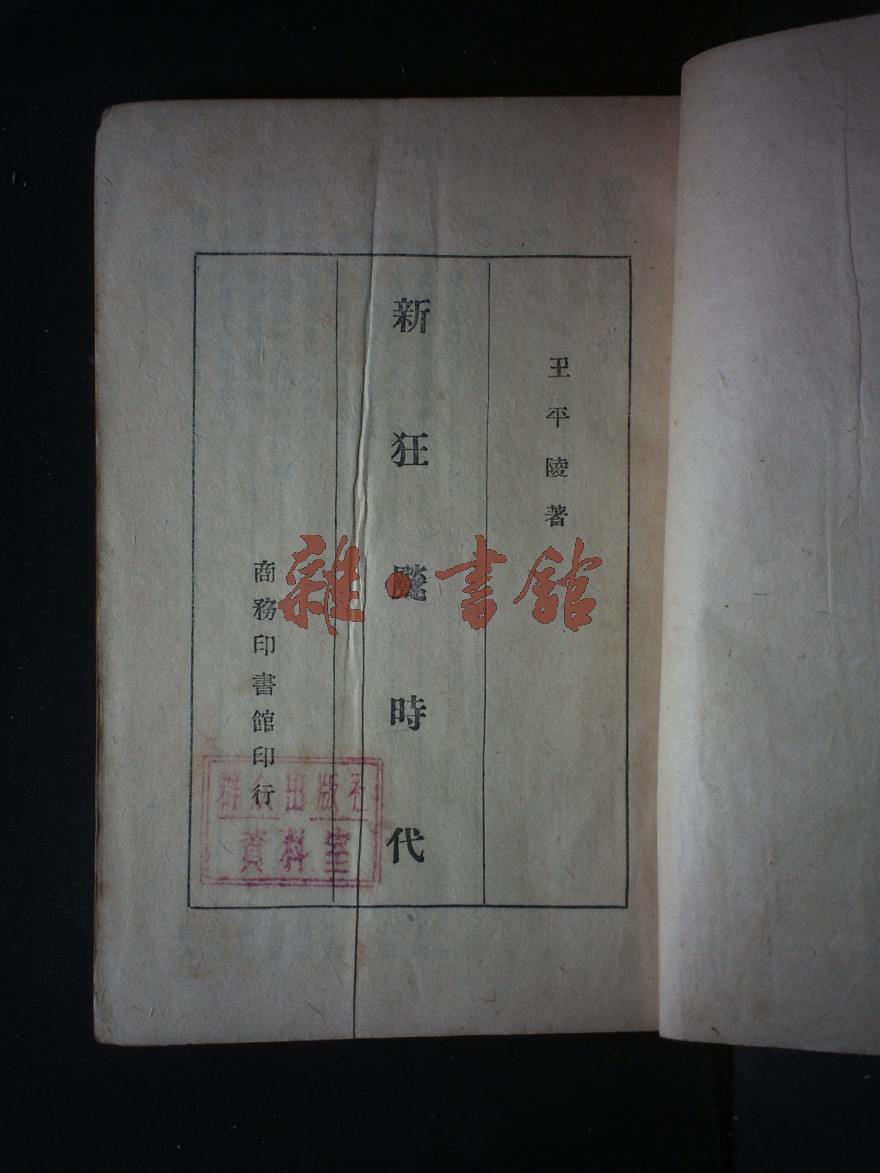 王平陵著
新狂飈時代
商務印書館印行
雜·書館
群众出版社
資料室